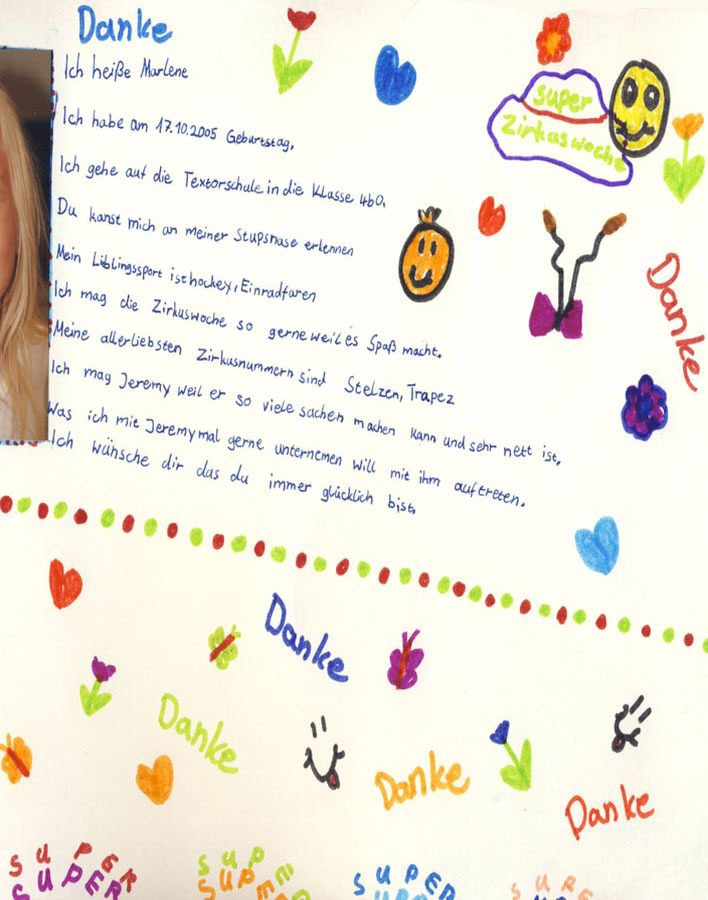 Danke
Ich heiße Marlene
Ich habe am 17.10.2005 Geburtstag.
Ich gehe auf die Textorschule in die Klasse 4b.
Du kanst mich an meiner Stupsnase erlennen
Mein Lieblingssport ist hockey, Einradfaren
Ich mag die Zirkuswoche so gerne weil es Spaß macht.
Meine allerliebsten Zirkusnummern sind Stelzen, Trapez
Ich mag Jeremy weil er so viele sachen machen kann und sehr nett ist.
Was ich mit Jeremy mal gerne unternemen will mit ihm auftreten.
Ich wünsche dir das du immer glücklich bist.
super
Zirkuswoche
Danke
Danke
Danke
Danke
Danke
SUPER SUPER SUPER
SUPER SUPER